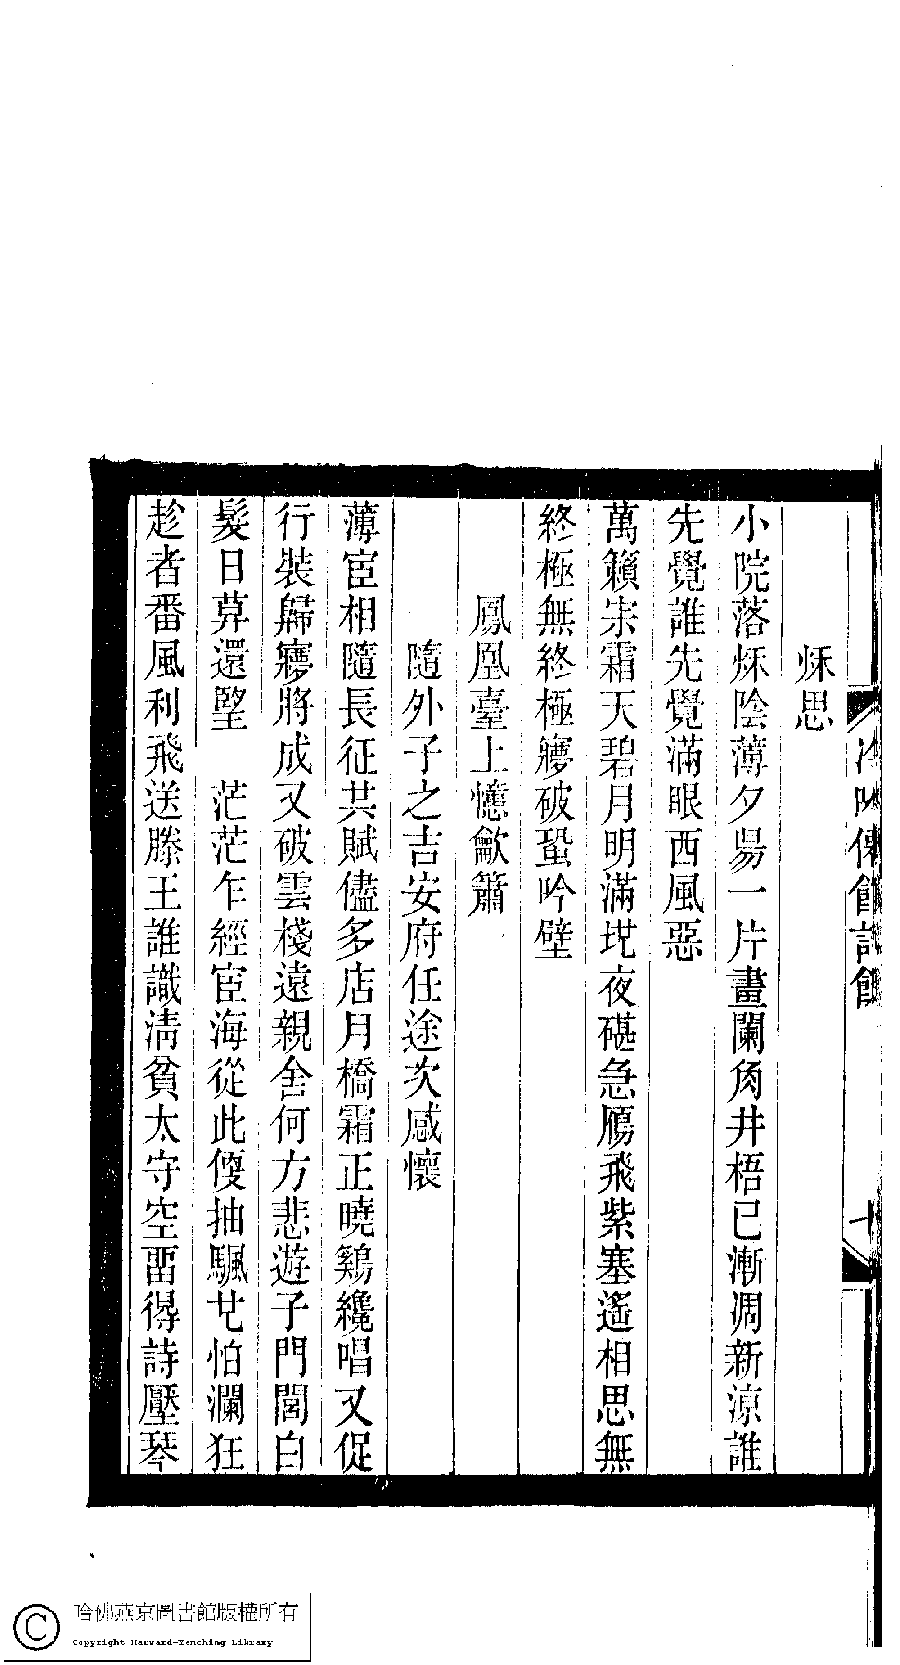 秌思
小院落秌陰薄夕昜一片畫闌角井梧已漸凋新涼誰
先覺誰先覺滿眼西風惡
萬籟宋霜天碧月明滿地夜碪急鴈飛紫塞遙相思無
終極無終極㝱破蛩吟壁
鳳凰臺上憶龡簫
隨外子之吉安府任途次感懷
薄宦相隨長征共賦儘多店月橋霜正曉鷄纔唱又促
行裝歸㝱將成又破雲棧遠親舍何方悲遊子門閭白
髮日莫還朢 茫茫乍經宦海從此便抽颿也怕瀾狂
趁者番風利飛送滕王誰識清貧太守空畱得詩壓琴
冷吟僊館詩餘
十
哈佛燕京圖書館版權所有
Copyright Harvard-Yenching Library